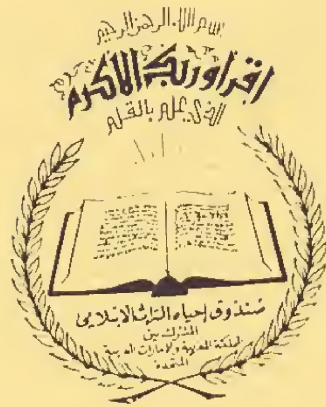 بسم الله الرحمن الرحيم
اقرأ وربك الاكرم
الذي علم بالقلم
صندوق إحياء التراث الإسلامي
المشترك بين
المملكة المغربية والإمارات العربية
المتحدة